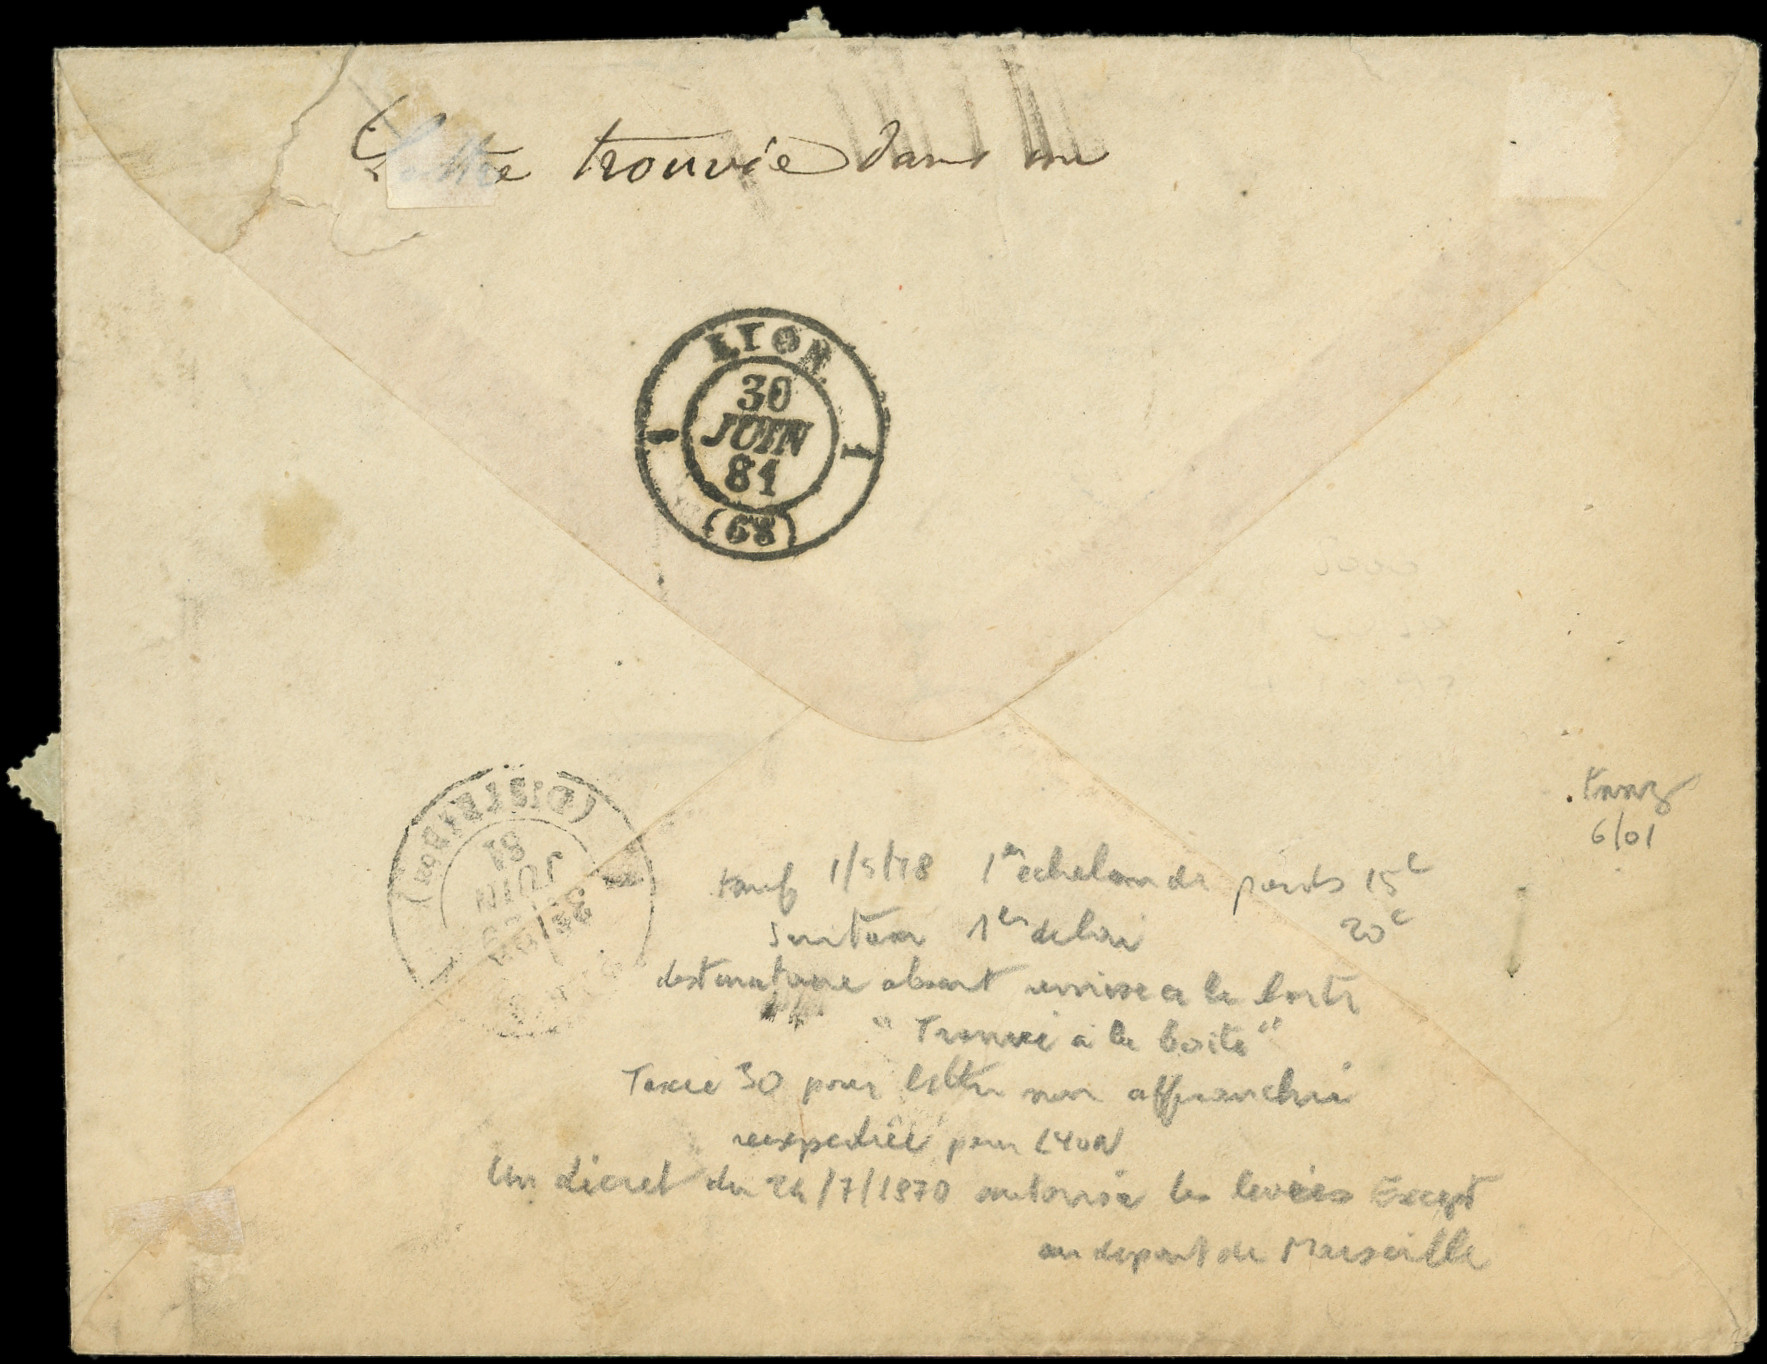 Lettre trouvée dans une
LYON
30
JUIN
81
(68)
1 1
(DISTRIBon)
81
JUIN
tarif 1/5/78 1er échelon de poids 15c
Surtaxe 1er délai 20c
destinataire absent remise à la boite
"Trouvé à la boite"
Taxée 30 pour lettre non affranchie
reexpediée pour LYON
Un décret du 24/7/1870 autorise les levées Except
au depart de Marseille
6/01